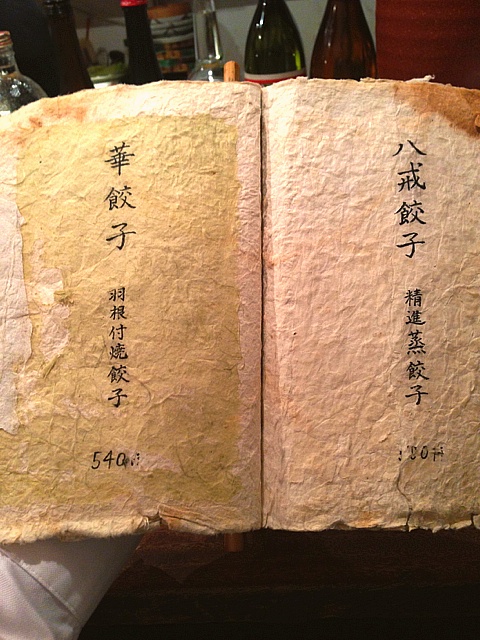 八戒餃子
精進蒸餃子
華餃子
羽根付焼餃子
540円